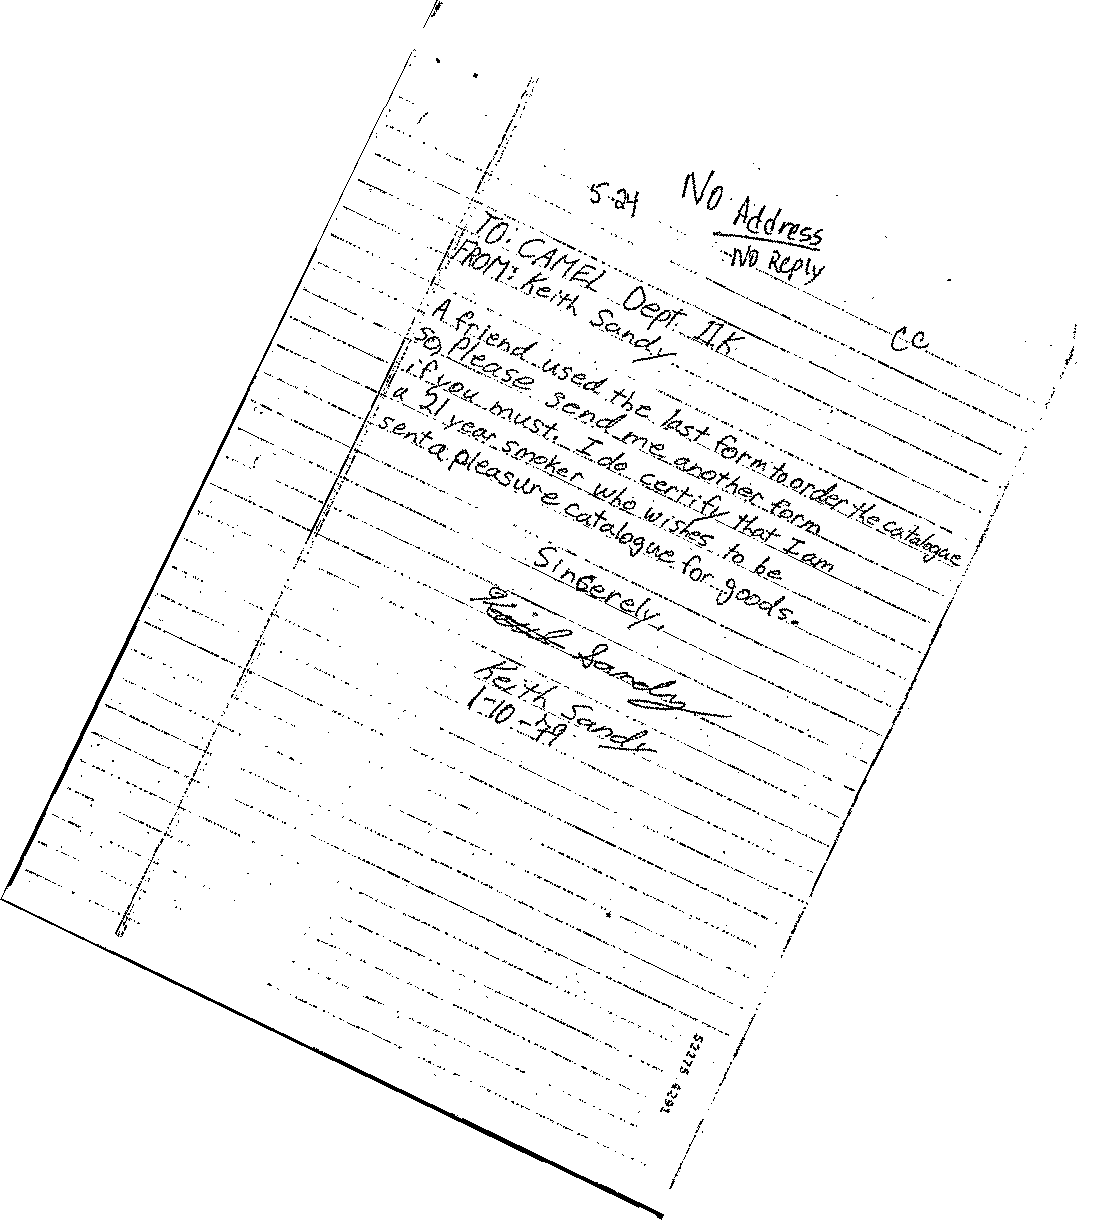 5-24
No Address
No Reply
cc
TO: CAMEL Dept. IIK
FROM: Keith Sandy
A friend used the last form to order the catalogue
so, please send me another form
if you must. I do certify that I am
a 21 year smoker who wishes to be
sent a pleasure catalogue for goods.
Sincerely,
Keith Sandy
Keith Sandy
1-10-79
52275 4291